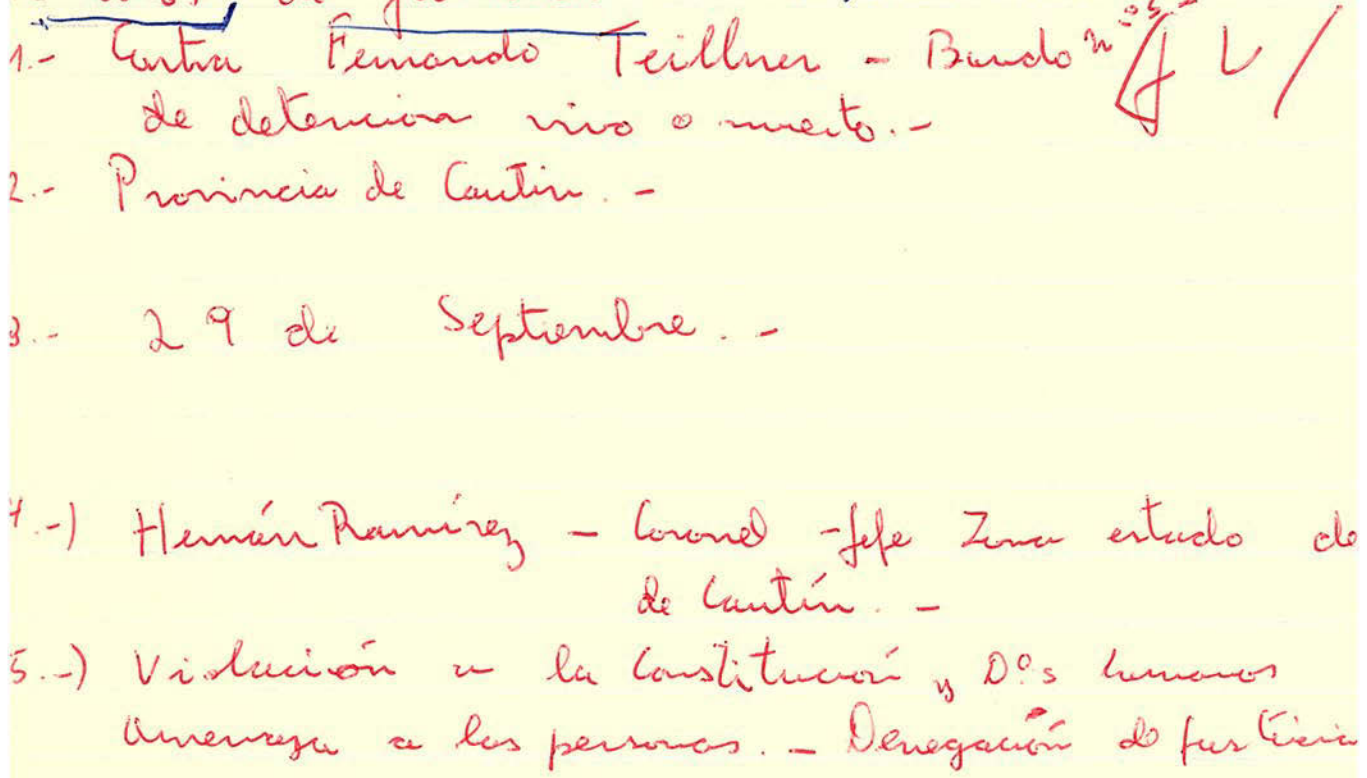 1.- Contra Fernando Teillner - Bando n°
de detencion vivo o muerto.-
2.- Provincia de Cautin.-
3.- 29 de Septiembre.-
4.-) Hernán Ramírez - Coronel - Jefe Zona estado de
de Cautín.-
5.-) Violación a la Constitución y D°s humanos
Amenaza a las personas.- Denegación de justicia